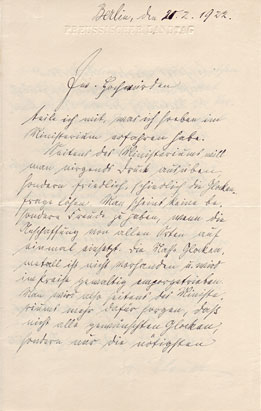 Berlin, den 21.2.1922.
PREUSSISCHER LANDTAG
Ew. Hochwürden
teile ich mit, was ich soeben im
Ministerium erfahren habe.
Seitens des Ministeriums will
man nirgends Druck ausüben
sondern friedlich, schiedlich die Glocken-
frage lösen. Man scheint keine be-
sondere Freude zu haben, wenn die
Anschaffung von allen Orten auf
einmal einsetzt. Die Glocken
metall ist nicht vorhanden u. wird
im Preise gewaltig emporgetrieben.
Man wird seitens des Ministe-
riums mehr dafür sorgen, daß
nicht alle gewünschten Glocken,
sondern nur die nötigsten